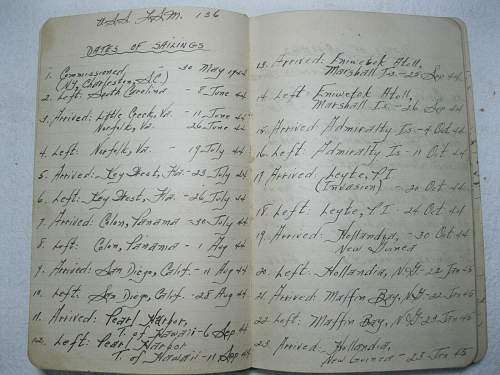 U.S.S. L.S.M. 136
DATES OF SAILINGS
1. Commissioned, - 30 May 1944
(Ny, Charleston, S.C.)
2. Left: South Carolina - 8 June 44
3. Arrived: Little Creek, Va. - 11 June 44
Norfolk, Va. 26 June 44
4. Left: Norfolk, Va. - 19 July 44
5. Arrived: Key West, Fla - 23 July 44
6. Left: Key West, Fla. - 26 July 44
7. Arrived: Colon, Panama - 30 July 44
8. Left: Colon, Panama - 1 Aug 44
9. Arrived: San Diego, Calif. - 11 Aug 44
10. Left: San Diego, Calif. - 28 Aug 44
11. Arrived: Pearl Harbor,
T. of Hawaii - 6 Sep 44
12. Left: Pearl Harbor
T. of Hawaii - 11 Sep 44
13. Arrived: Eniwetok Atoll,
Marshall Is. - 23 Sep 44
14. Left: Eniwetok Atoll,
Marshall Is. - 26 Sep 44
15. Arrived Admiralty Is - 4 Oct 44
16. Left: Admiralty Is - 11 Oct 44
17. Arrived: Leyte, P.I
(Invasion) - 20 Oct 44
18. Left: Leyte, P.I. 24 Oct 44
19. Arrived: Hollandia, - 30 Oct 44
New Guinea
20. Left: Hollandia, N.G - 22 Jan 45
21. Arrived: Maffin Bay, N.G - 22 Jan 45
22. Left: Maffin Bay, N.G - Jan 45
23. Arrived: Hollandia,
New Guinea - 25 Jan 45